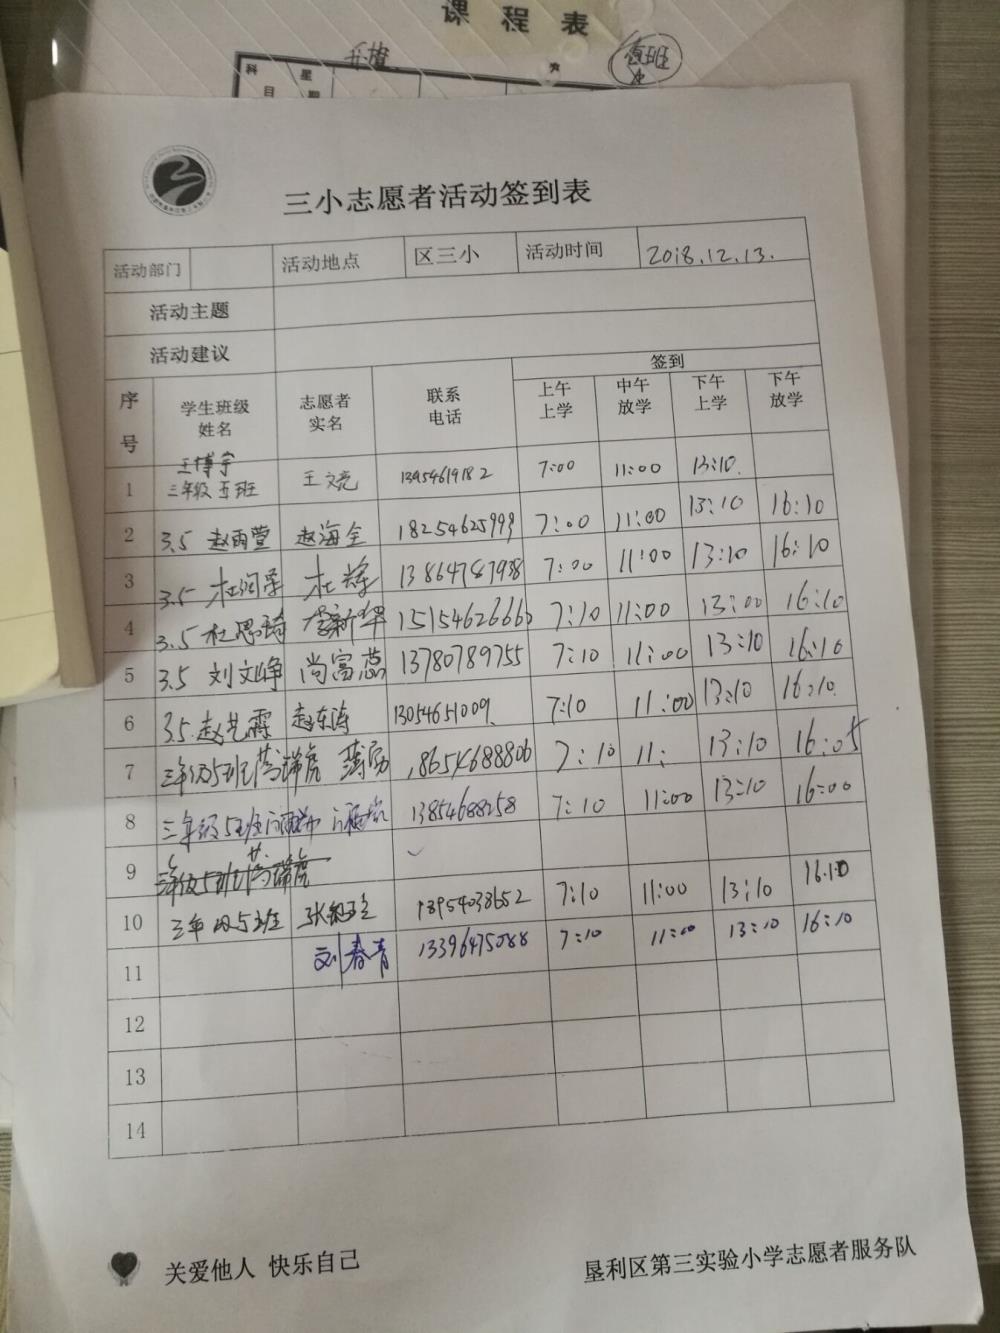 课程表
科 星
目 期
值班
三小志愿者活动签到表
活动部门 活动地点 区三小 活动时间 2018.12.13.
活动主题
活动建议
序号 学生班级姓名 志愿者实名 联系电话 签到
上午上学 中午放学 下午上学 下午放学
王博宇
1 三年级五班 王文亮 13954619182 7:00 11:00 13:10
2 3.5 赵雨萱 赵海全 18254625999 7:00 11:00 13:10 16:10
3 3.5 杜润泽 杜辉 13864787938 7:00 11:00 13:10 16:10
4 3.5 杜思琦 李新华 15154626660 7:10 11:00 13:00 16:10
5 3.5 刘文峥 尚富蕊 13780789755 7:10 11:00 13:10 16:10
6 3.5 赵艺霖 赵东涛 13054651009 7:10 11:00 13:10 16:10
7 三年级5班 瑞虎 18654688806 7:10 11: 13:10 16:05
8 三年级5班 13854688258 7:10 11:00 13:10 16:00
9 三年级5班 瑞虎
10 三年级5班 13954038652 7:10 11:00 13:10 16:10
11 刘春青 13396475088 7:10 11:00 13:10 16:10
12
13
14
关爱他人 快乐自己
垦利区第三实验小学志愿者服务队